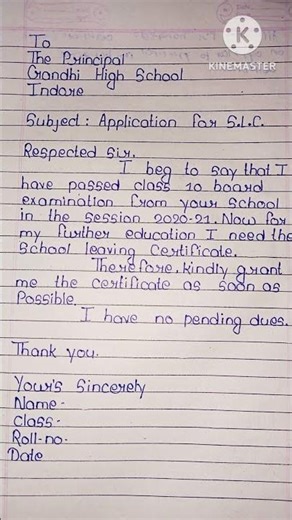 To
The Principal
Gandhi High School
Indore
KINEMASTER
Subject : Application for S.L.C.
Respected Sir,
I beg to say that I
have passed class 10 board
examination from your school
in the session 2020-21. Now for
my further education I need the
School leaving Certificate.
Therefore, kindly grant
me the certificate as soon as
Possible.
I have no pending dues.
Thank you.
Your's Sincerely
Name-
Class-
Roll-no-
Date